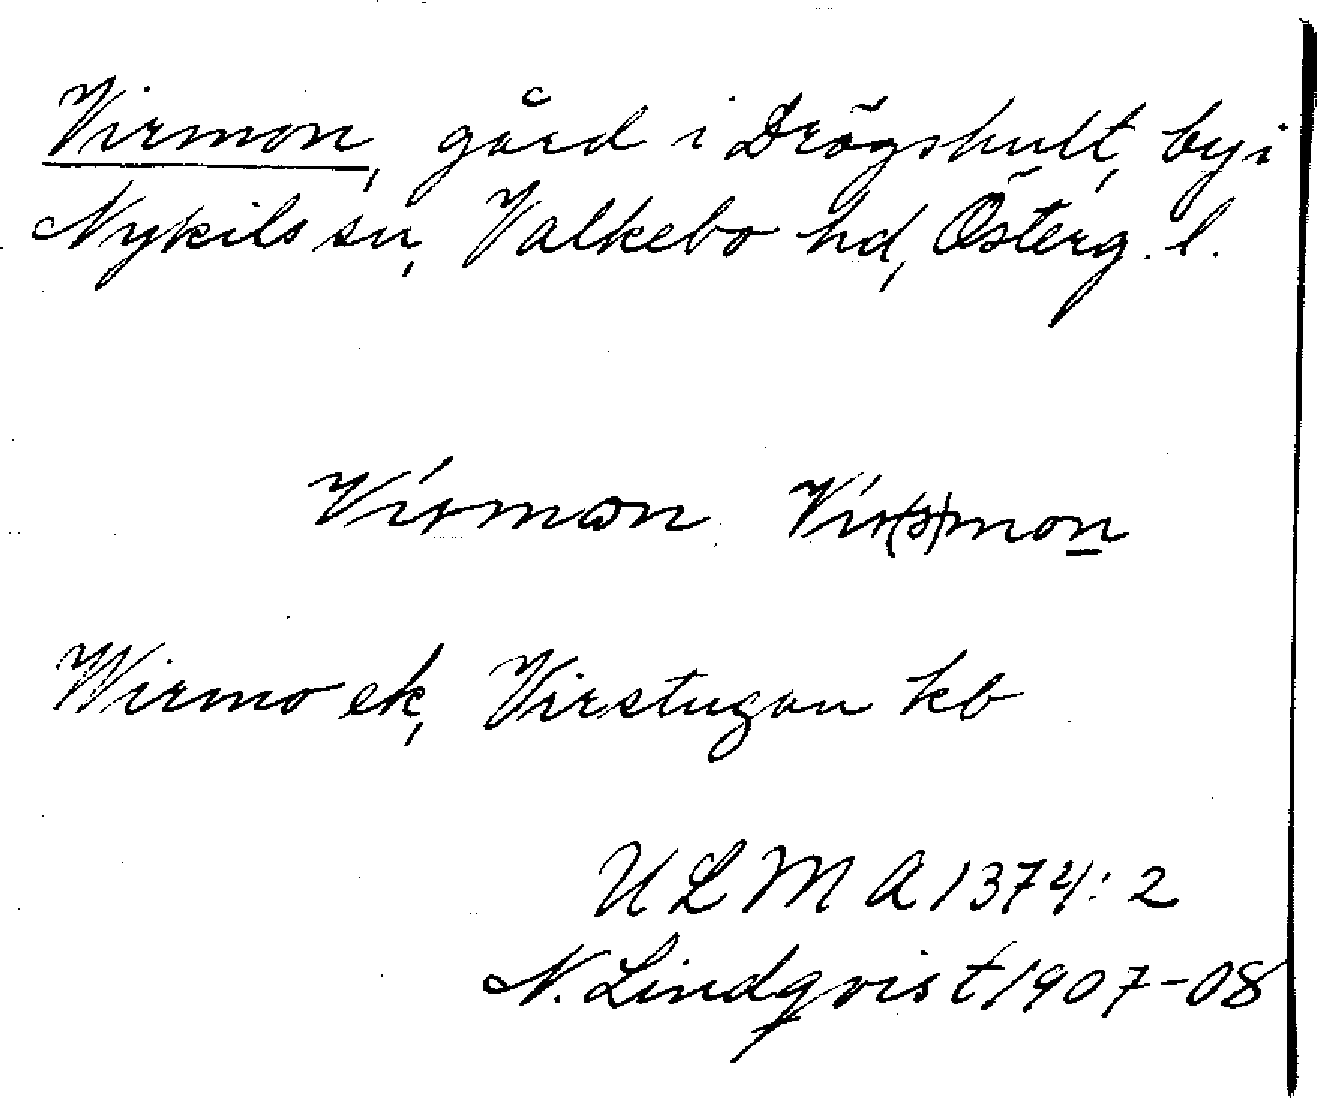 Virmon, gård i Drögshult, by i
Nykils sn, Valkebo hd, Österg. l.
Virmon Vir(s)mon
Wirmo ek, Virstugan kb
ULMA 1374:2
N. Lindqvist 1907-08